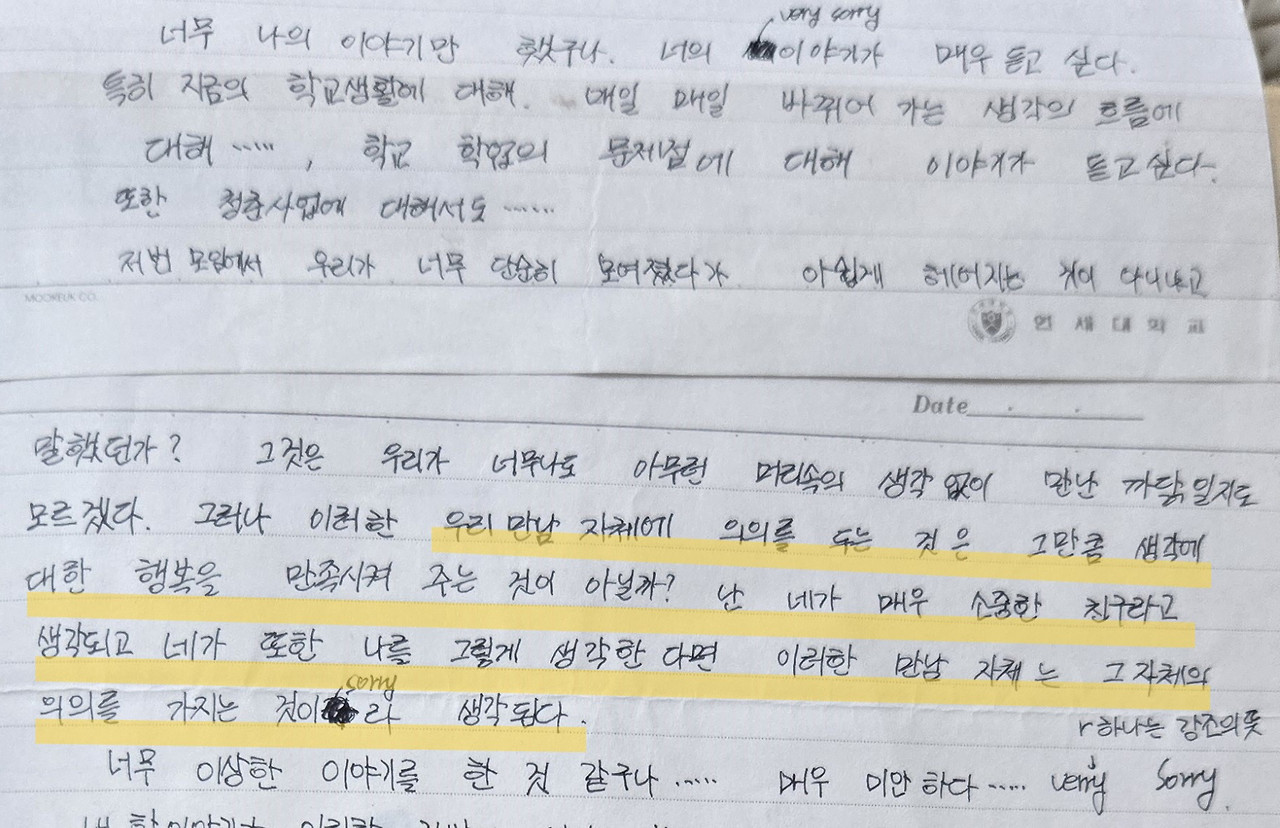 very sorry
너무 나의 이야기만 했구나. 너의 이야기가 매우 듣고 싶다.
특히 지금의 학교생활에 대해. 매일 매일 바뀌어 가는 생각의 흐름에
대해 ....., 학교 학업의 문제점에 대해 이야기가 듣고싶다.
또한 청춘사업에 대해서도 ......
저번 모임에서 우리가 너무 단순히 모여졌다가 아쉽게 헤어지는 것이 아니냐고
MOORIM CO.
연세대학교
Date
말했던가? 그것은 우리가 너무나도 아무런 머리속의 생각 없이 만난 까닭일지도
모르겠다. 그러나 이러한 우리 만남 자체에 의의를 두는 것은 그만큼 생각에
대한 행복을 만족시켜 주는 것이 아닐까? 난 네가 매우 소중한 친구라고
생각되고 네가 또한 나를 그렇게 생각한다면 이러한 만남 자체는 그 자체의
sorry
의의를 가지는 것이라 생각된다.
r하나는 강조의 뜻
너무 이상한 이야기를 한 것 같구나...... 매우 미안하다..... verry sorry.